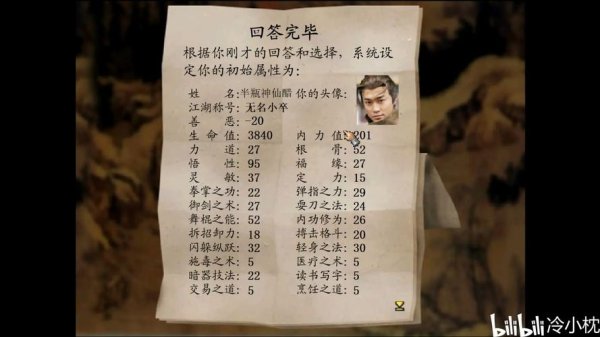 回答完毕
根据你刚才的回答和选择，系统设
定你的初始属性为：
姓 名:半瓶神仙醋 你的头像:
江湖称号:无名小卒
善 恶:-20
生 命 值: 3840 内 力 值: 201
力 道: 27 根 骨: 52
悟 性: 95 福 缘: 27
灵 敏: 37 定 力: 15
拳掌之功: 22 弹指之力: 29
御剑之术: 27 耍刀之法: 24
舞棍之能: 52 内功修为: 26
拆招卸力: 18 搏击格斗: 20
闪躲纵跃: 32 轻身之法: 30
施毒之术: 5 医疗之术: 5
暗器技法: 22 读书写字: 5
交易之道: 5 烹饪之道: 5
bilibili 冷小枕